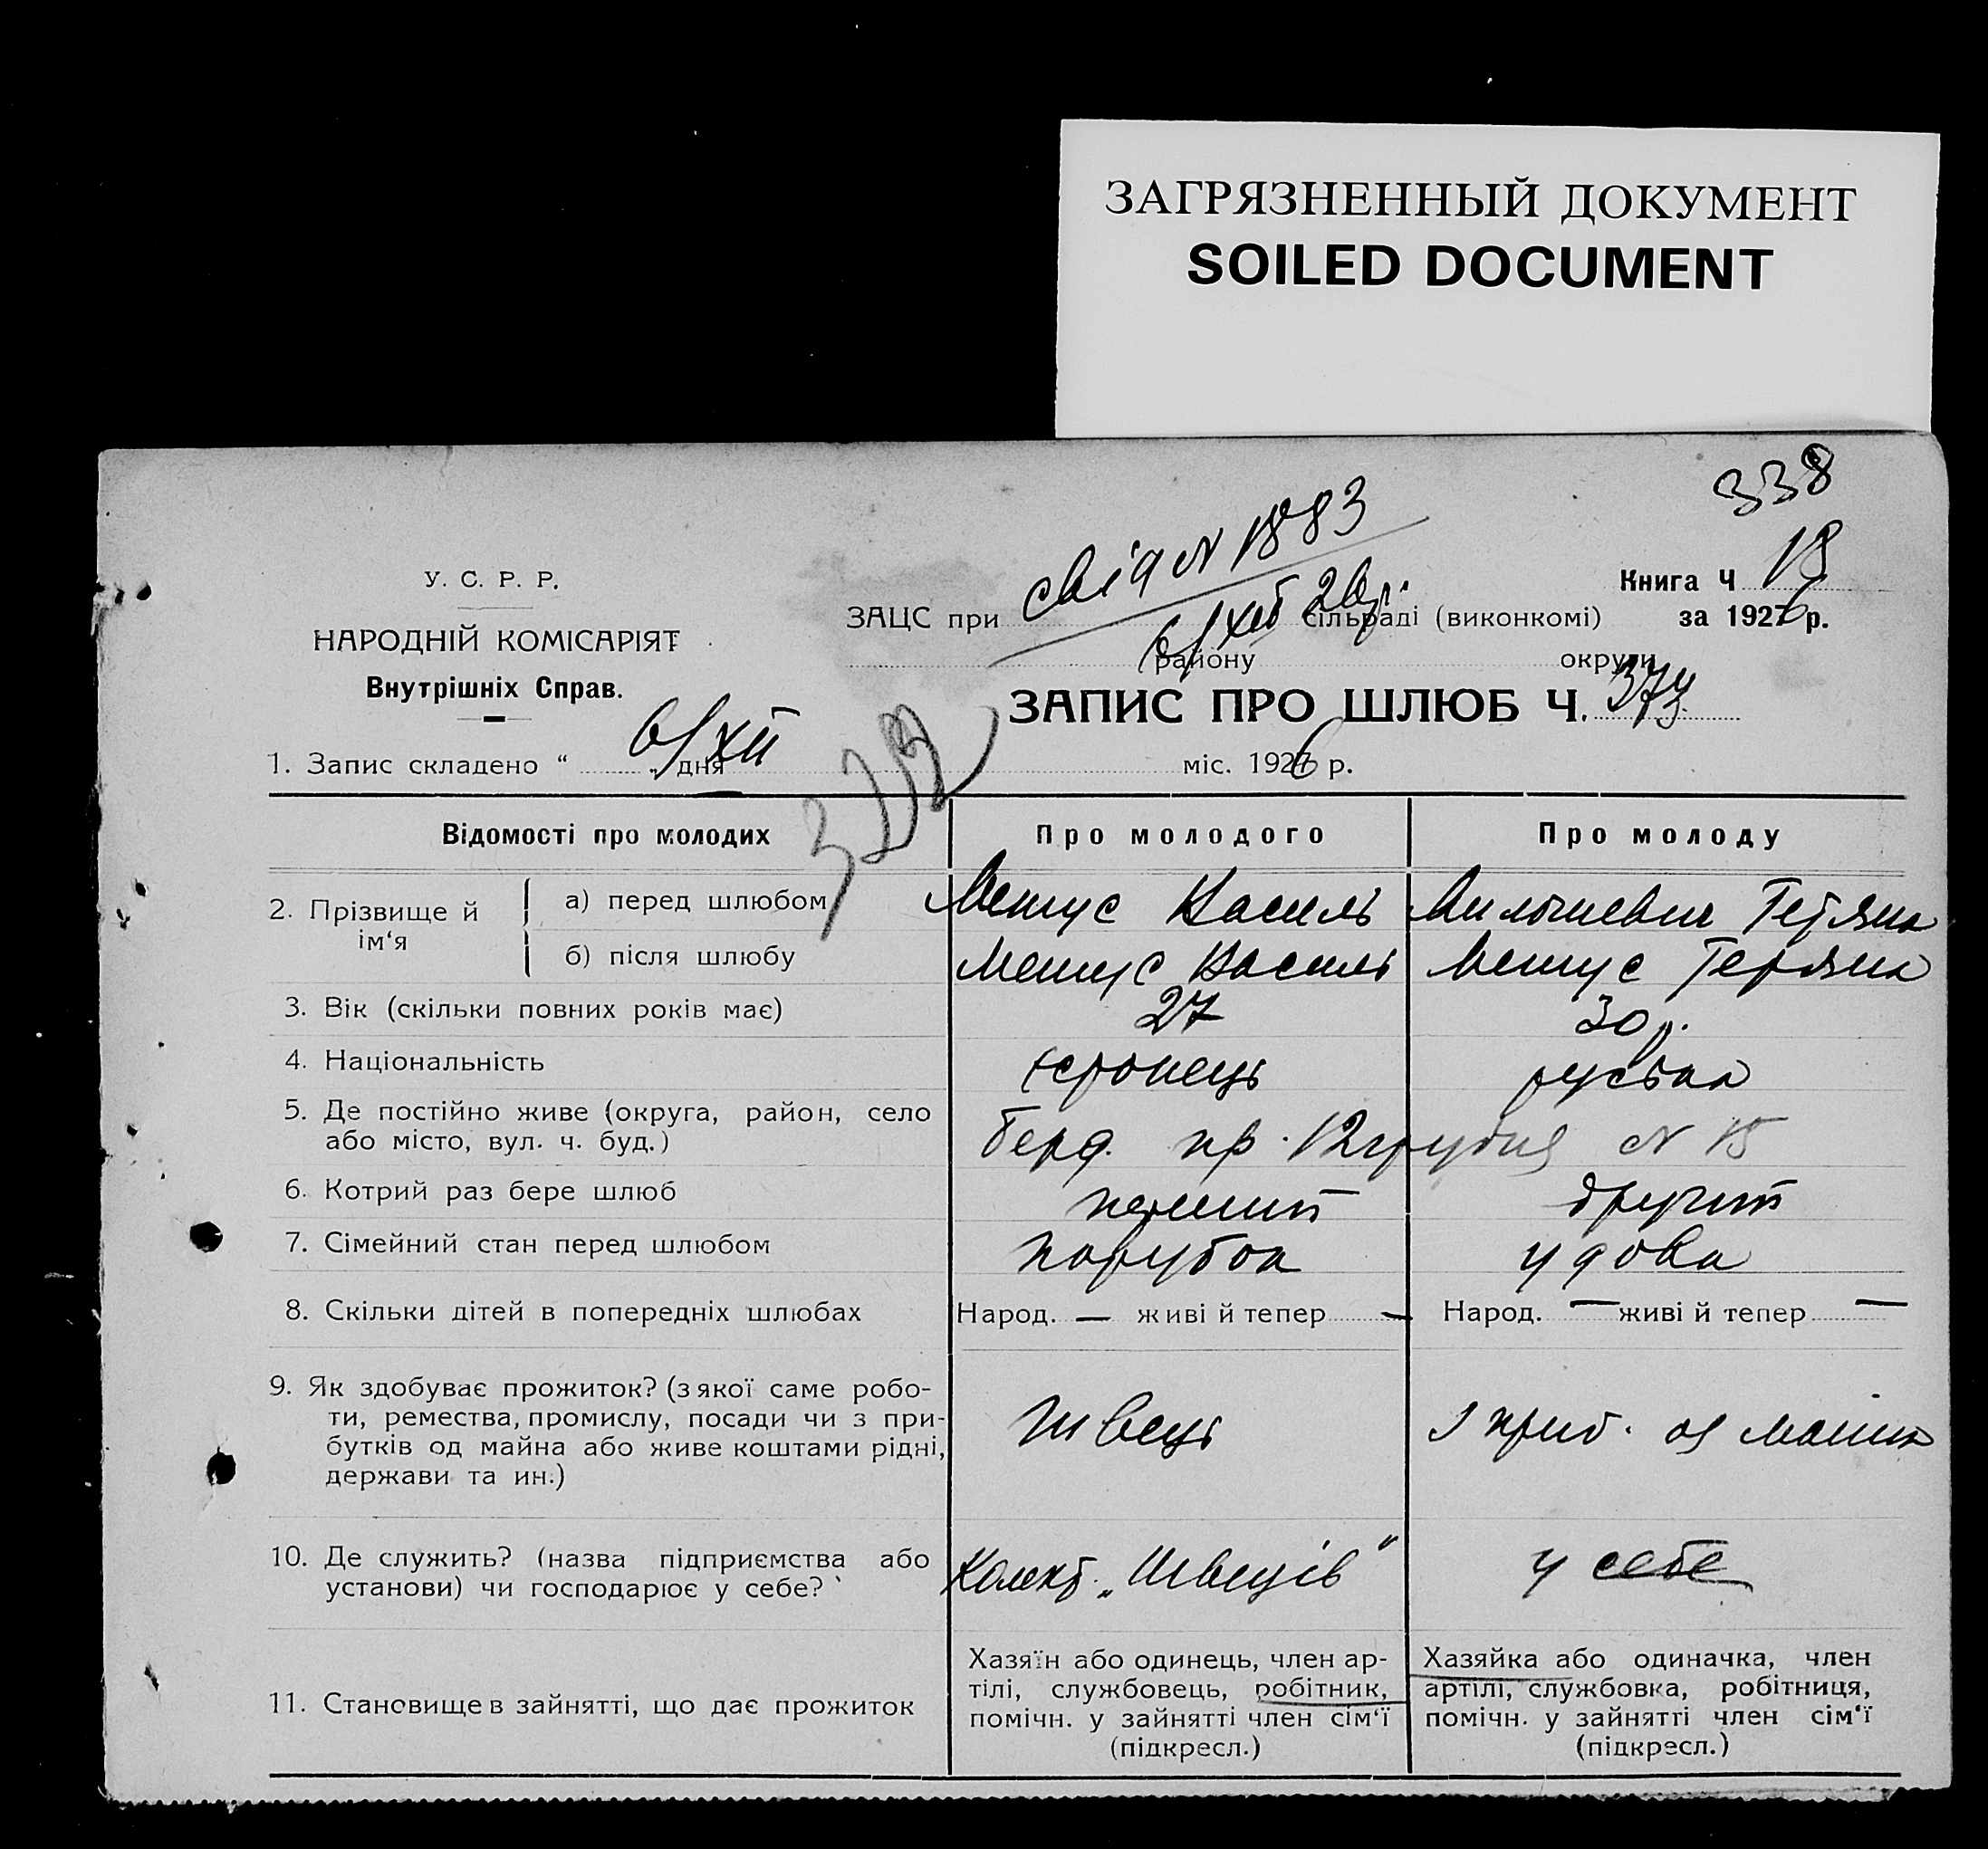 ЗАГРЯЗНЕННЫЙ ДОКУМЕНТ
SOILED DOCUMENT
338
У. С. Р. Р.
НАРОДНІЙ КОМІСАРІЯТ
Внутрішніх Справ.
свід N 1883
6/XII 26 р.
Книга Ч 18
ЗАЦС при сільраді (виконкомі) за 1926 р.
району округи
ЗАПИС ПРО ШЛЮБ Ч. 373
1. Запис складено “ 6/XII „ дня міс. 1926 р.
Відомості про молодих Про молодого Про молоду
2. Прізвище й ім‘я
а) перед шлюбом Василь
б) після шлюбу Василь
3. Вік (скільки повних років має) 27 30 р.
4. Національність руська
5. Де постійно живе (округа, район, село
або місто, вул. ч. буд.) Берд. пр. 12 грудня N 15
6. Котрий раз бере шлюб перший другий
7. Сімейний стан перед шлюбом парубок удова
8. Скільки дітей в попередніх шлюбах Народ. — живі й тепер — Народ. — живі й тепер —
9. Як здобуває прожиток? (з якої саме робо-
ти, ремества, промислу, посади чи з при-
бутків од майна або живе коштами рідні,
держави та ин.)
швець
з приб. од майна
10. Де служить? (назва підприємства або
установи) чи господарює у себе?
Колект. „Швеців“
у себе
11. Становище в зайнятті, що дає прожиток
Хазяїн або одинець, член ар-
тілі, службовець, робітник,
помічн. у зайнятті член сім‘ї
(підкресл.)
Хазяйка або одиначка, член
артілі, службовка, робітниця,
помічн. у зайнятті член сім‘ї
(підкресл.)